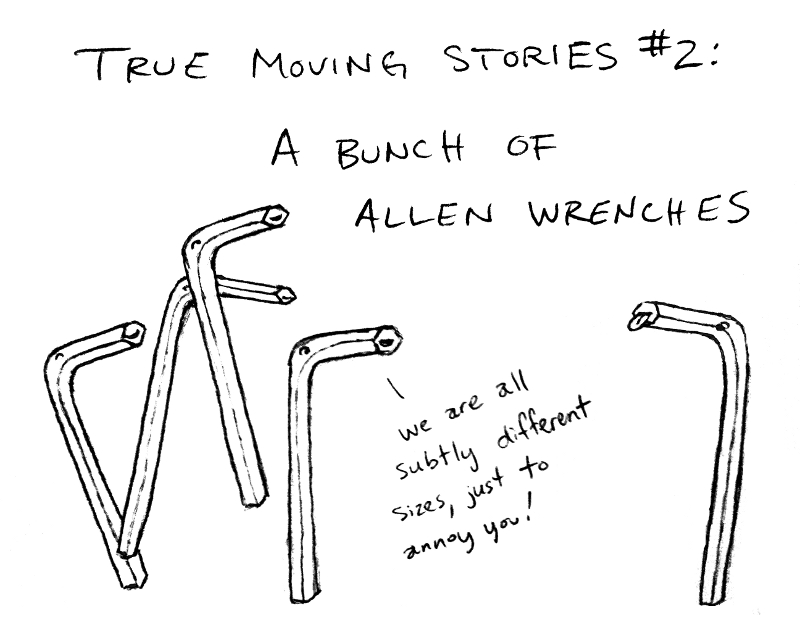 TRUE MOVING STORIES #2:
A BUNCH OF
ALLEN WRENCHES
we are all
subtly different
sizes, just to
annoy you!